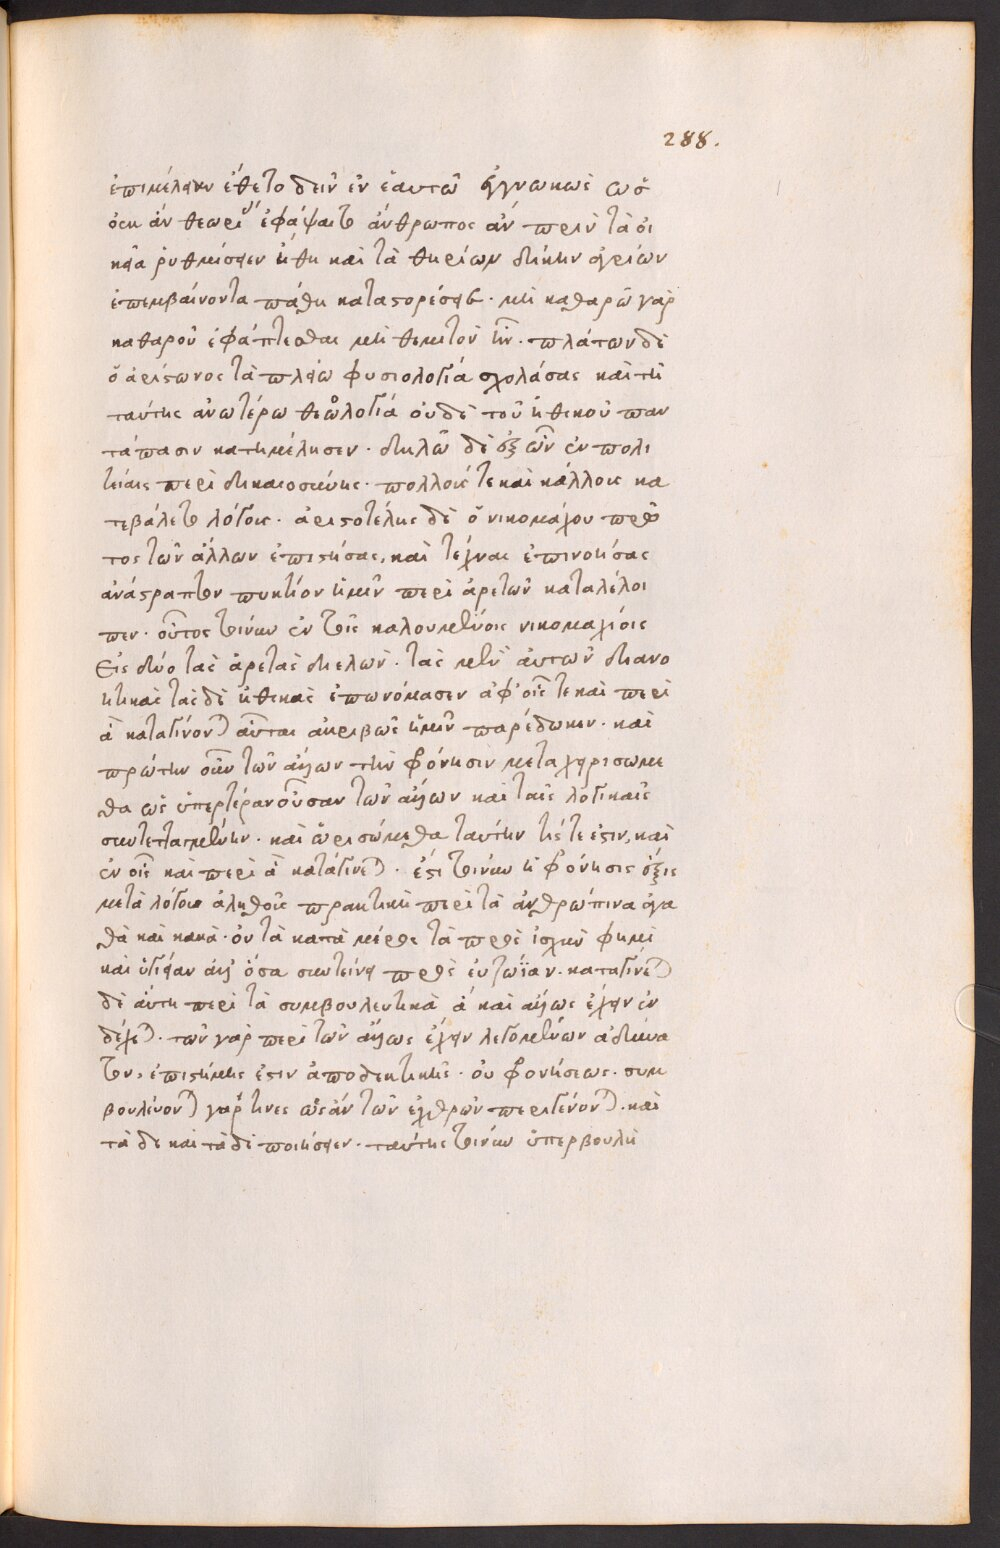 288.
ἐπιμέλειαν ἔθετο δεῖν ἐν ἑαυτῶ ἐγνωκὼς ὡς
θεωρί ἐφάψαιτο ἄνθρωπος ἂν πρὶν τὰ οἰ
κεῖα ῥυθμίσειεν ἤθη καὶ τὰ θηρίων δίκην ἀγρίων
ἐπεμβαίνοντα πάθη καταστορέσει. μὴ καθαρῶ γὰρ
καθαροῦ ἐφάπτεσθαι μὴ θεμιτὸν. πλάτων δὲ
ὁ ἀρίστωνος τὰ πλείω φυσιολογία σχολάσας καὶ τῆ
ταύτης ἀνωτέρω θεολογία οὐδὲ τοῦ ἠθικοῦ παν
τάπασιν κατημέλησεν. δηλοῖ δὲ ἐξ ὧν ἐν πολι
τείαις περὶ δικαιοσύνης. πολλούς τε καὶ κάλλους κα
τεβάλετο λόγους. ἀριστοτέλης δὲ ὁ νικομάχου πρῶ
τος τῶν ἄλλων ἐπιστήσας, καὶ τέχναις ἐπινοήσας
πυκτίον ἡμῖν περὶ ἀρετῶν καταλέλοι
πεν. οὗτος τοίνυν ἐν τοῖς καλουμένοις νικομαχίοις
εἰς δύο τὰς ἀρετὰς διελὼν. τὰς μὲν αὐτῶν διανο
ητικὰς τὰς δὲ ἠθικὰς ἐπωνόμασεν ἀφ' οἷς τε καὶ περὶ
ἃ καταγίνονται αὗται ἀκριβῶς ἡμῖν παρέδωκεν. καὶ
πρώτην οὖν τῶν ἄλλων τὴν φρόνησιν μεταχειρισώμε
θα ὡς ὑπερτέραν οὖσαν τῶν ἄλλων καὶ ταῖς λογικαῖς
συντεταγμένην. καὶ ὁρισώμεθα ταύτην τίς τε ἐστιν, καὶ
ἐν οἷς καὶ περὶ ἃ καταγίνεται. ἔστι τοίνυν ἡ φρόνησις ἕξις
μετὰ λόγου ἀληθοῦς πρακτικὴ περὶ τὰ ἀνθρώπινα ἀγα
θὰ καὶ κακὰ. οὐ τὰ κατὰ μέρος τὰ πρὸς ἰσχὺν φημὶ
καὶ ὑγίειαν ἀλλ' ὅσα συντείνει πρὸς εὐζωΐαν. καταγίνεται
δὲ αὕτη περὶ τὰ συμβουλευτικὰ ἃ καὶ ἄλλως ἔχειν ἐν
δέχεται. τῶν γὰρ περὶ τῶν ἄλλως ἔχειν λεγομένων ἀδύνα
τον, ἐπιστήμης ἐστιν ἀποδεικτικῆς. οὐ φρονήσεως. συμ
βουλεύονται γάρ τινες ὡς ἂν τῶν ἐχθρῶν περιγένονται. καὶ
τὰ δε καὶ τὰ δὲ ποιήσειεν. ταύτης τοίνυν ὑπερβουλὴ